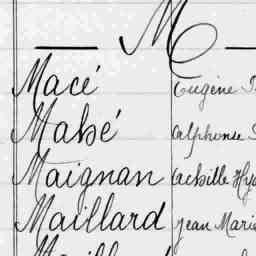 — M —
Macé Eugène
Mahé Alphonse
Maignan Achille Hya
Maillard Jean Marie